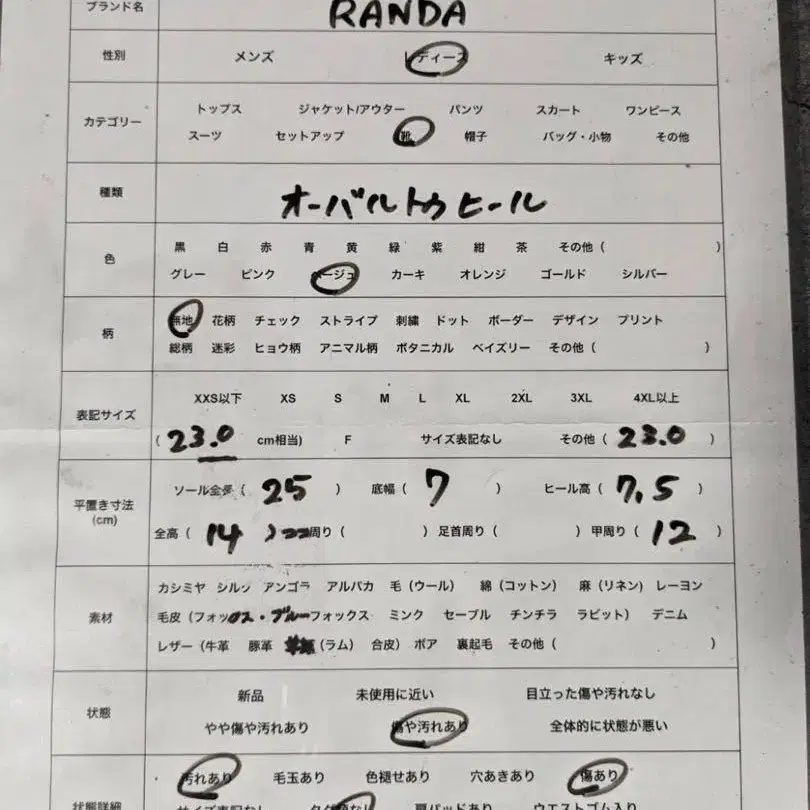 ブランド名 RANDA
性別 メンズ レディース キッズ
カテゴリー トップス ジャケット/アウター パンツ スカート ワンピース
スーツ セットアップ 靴 帽子 バッグ・小物 その他
種類 オーバルトゥヒール
色 黒 白 赤 青 黄 緑 紫 紺 茶 その他( )
グレー ピンク ベージュ カーキ オレンジ ゴールド シルバー
柄 無地 花柄 チェック ストライプ 刺繍 ドット ボーダー デザイン プリント
総柄 迷彩 ヒョウ柄 アニマル柄 ボタニカル ペイズリー その他( )
表記サイズ XXS以下 XS S M L XL 2XL 3XL 4XL以上
(23.0 cm相当) F サイズ表記なし その他(23.0)
平置き寸法 (cm) ソール全長(25) 底幅(7) ヒール高(7,5)
全高(14) 周り( ) 足首周り( ) 甲周り(12)
素材 カシミヤ シルク アンゴラ アルパカ 毛(ウール) 綿(コットン) 麻(リネン) レーヨン
毛皮(フォックス・ブルーフォックス ミンク セーブル チンチラ ラビット) デニム
レザー(牛革 豚革 (ラム) 合皮) ボア 裏起毛 その他( )
状態 新品 未使用に近い 目立った傷や汚れなし
やや傷や汚れあり 傷や汚れあり 全体的に状態が悪い
汚れあり 毛玉あり 色褪せあり 穴あきあり 傷あり
状態詳細 サイズ表記なし タグ 肩パッドあり ウエストゴム入り